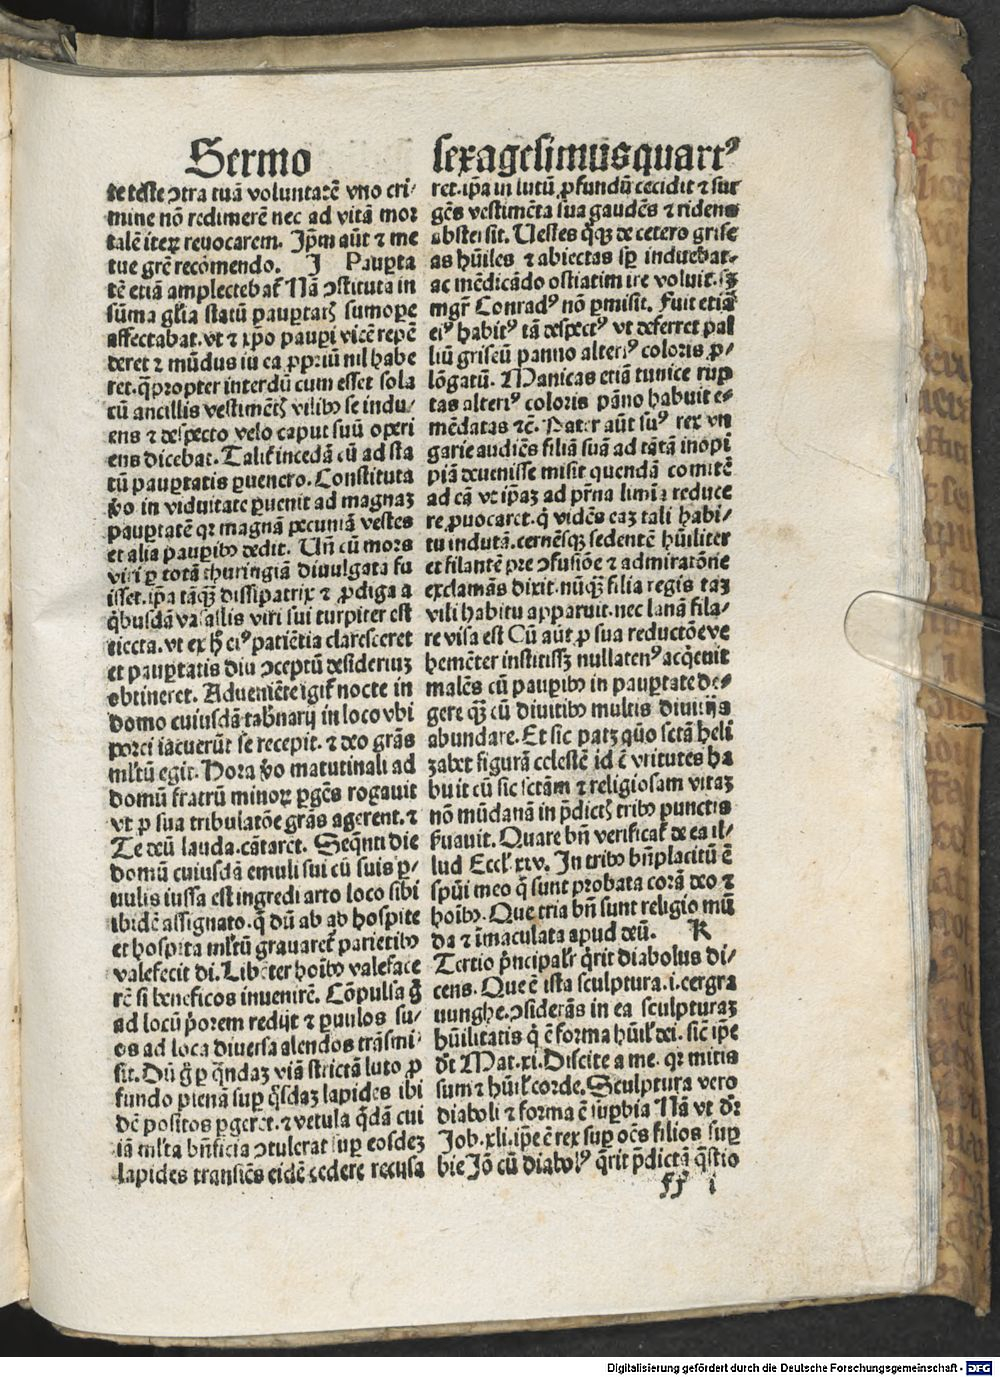 Sermo
te teste ꝯtra tuā voluntatē vno cri⸗
mine nō redimerē nec ad vitā mor
talē iteꝝ reuocarem. Jp̄m aūt ⁊ me
tue grē recōmendo. J Pauꝑta
tē etiā amplectebat̄ Nā ꝯstituta in
sūma gl̄ia statū pauꝑtatꝭ sumope
affectabat. vt ⁊ xp̄o pauꝑi vicē repē
deret ⁊ mūdus iu ea ꝓpriū nil habe
ret. q̄propter interdū cum esset sola
cū ancillis vestimētꝭ vilibꝰ se indu⸗
ens ⁊ despecto velo caput suū operi
ens dicebat. Talit̄ incedā cū ad sta
tū pauꝑtatis ꝑuenero. Constituta
v̊o in viduitate ꝑuenit ad magnaꝫ
pauꝑtatē qꝛ magnā pecuniā vestes
et alia pauꝑibꝰ dedit. Un̄ cū mors
viri ꝑ totā thuringiā diuulgata fu
isset. ip̄a tāqꝫ dissipatrix ⁊ ꝓdiga a
q̇busdā vasallis viri sui turpiter est
eiecta. vt ex h̄ eiꝰ patiētia claresceret
et pauꝑtatis diu ꝯceptū desideriuꝫ
obtineret. Adueniēte igit̄ nocte in
domo cuiusdā tab̄narij in loco vbi
porci iacuerūt se recepit. ⁊ deo grās
ml̄tū egit. Hora v̊o matutinali ad
domū fratrū minoꝝ ꝑgēs rogauit
vt ꝓ sua tribulatōe grās agerent. ⁊
Te deū lauda. cātaret. Seq̄nti die
domū cuiusdā emuli sui cū suis ꝑ⸗
uulis iussa est ingredi arto loco sibi
ibidē assignato. q̄ dū ab ab hospite
et hospita ml̄tū grauaret̄ parietibꝰ
valefecit di. Libēter hoībꝰ valeface
rē si beneficos inuenirē. Cōpulsa g̊
ad locū p̊orem redijt ⁊ ꝑuulos su⸗
os ad loca diuersa alendos trāsmi⸗
sit. Dū g̊ ꝑ q̄ndaꝫ viā strictā luto ꝓ
fundo plenā suꝑ q̄sdaꝫ lapides ibi
dē positos ꝑgeret. ⁊ vetula q̄dā cui
iā ml̄ta bn̄ficia ꝯtulerat suꝑ eosdeꝫ
lapides transiēs eidē cedere recusa
sexagesimusquartꝰ
ret. ip̄a in lutū ꝓfundū cecidit ⁊ sur
gēs vestimēta sua gaudēs ⁊ ridens
abstersit. Uestes q̊qꝫ de cetero grise
as hūiles ⁊ abiectas sꝑ induebat.
ac mēdicādo ostiatim ire voluit. sꝫ
mgr̄ Conradꝰ nō ꝑmisit. Fuit etiā
eiꝰ habitꝰ tā despectꝰ vt deferret pal
liū griseū panno alteriꝰ coloris ꝓ⸗
lōgatū. Manicas etiā tunice rup
tas alteriꝰ coloris pāno habuit e⸗
mēdatas ⁊c̄. Pater aūt suꝰ rex vn
garie audiēs filiā suā ad tātā inopi
piā deuenisse misit quendā comitē
ad eā vt ip̄aꝫ ad pr̄na limīa reduce
re ꝓuocaret. q̇ vidēs eaꝫ tali habi⸗
tu indutā. cernēsqꝫ sedentē hūiliter
et filantē pre ꝯfusiōe ⁊ admiratōne
exclamās dixit. nūq̄ꝫ filia regis taꝫ
vili habitu apparuit. nec lanā fila⸗
re visa est Cū aūt ꝓ sua reductōe ve
hemēter institissꝫ nullatenꝰ acq̇euit
malēs cū pauꝑibꝰ in pauꝑtate de⸗
gere qꝫ cū diuitibꝰ multis diuitijs
abundare. Et sic patꝫ quō sctā heli
zabet figurā celestē id ē vrtutes ha
buit cū sic sctām ⁊ religiosam vitaꝫ
nō mūdanā in p̄dictꝭ tribꝰ punctis
ẜuauit. Quare bn̄ verificat̄ de ea il⸗
lud Eccl̄ xxv. In tribꝰ bn̄placitū ē
spūi meo q̄ sunt probata corā deo ⁊
hoībꝰ. Que tria bn̄ sunt religio mū
da ⁊ īmaculata apud deū. K
Tertio p̄ncipal̄r q̄rit diabolus di⸗
cens. Que ē ista sculptura. i. cergra
uunghe. ꝯsiderās in ea sculpturaꝫ
hūilitatis q̇ ē forma hūil̄ dei. sic̄ ip̄e
dt̄ Mat. xi. Discite a me. qꝛ mitis
sum ⁊ hūil̄ corde. Sculptura vero
diaboli ⁊ forma ē suꝑbia Nā vt dr̄
Job. xli. ip̄e ē rex suꝑ oēs filios suꝑ
bie Jō cū diabolꝰ q̄rit p̄dictā q̄stio
ff i
Digitalisierung gefördert durch die Deutsche Forschungsgemeinschaft - DFG